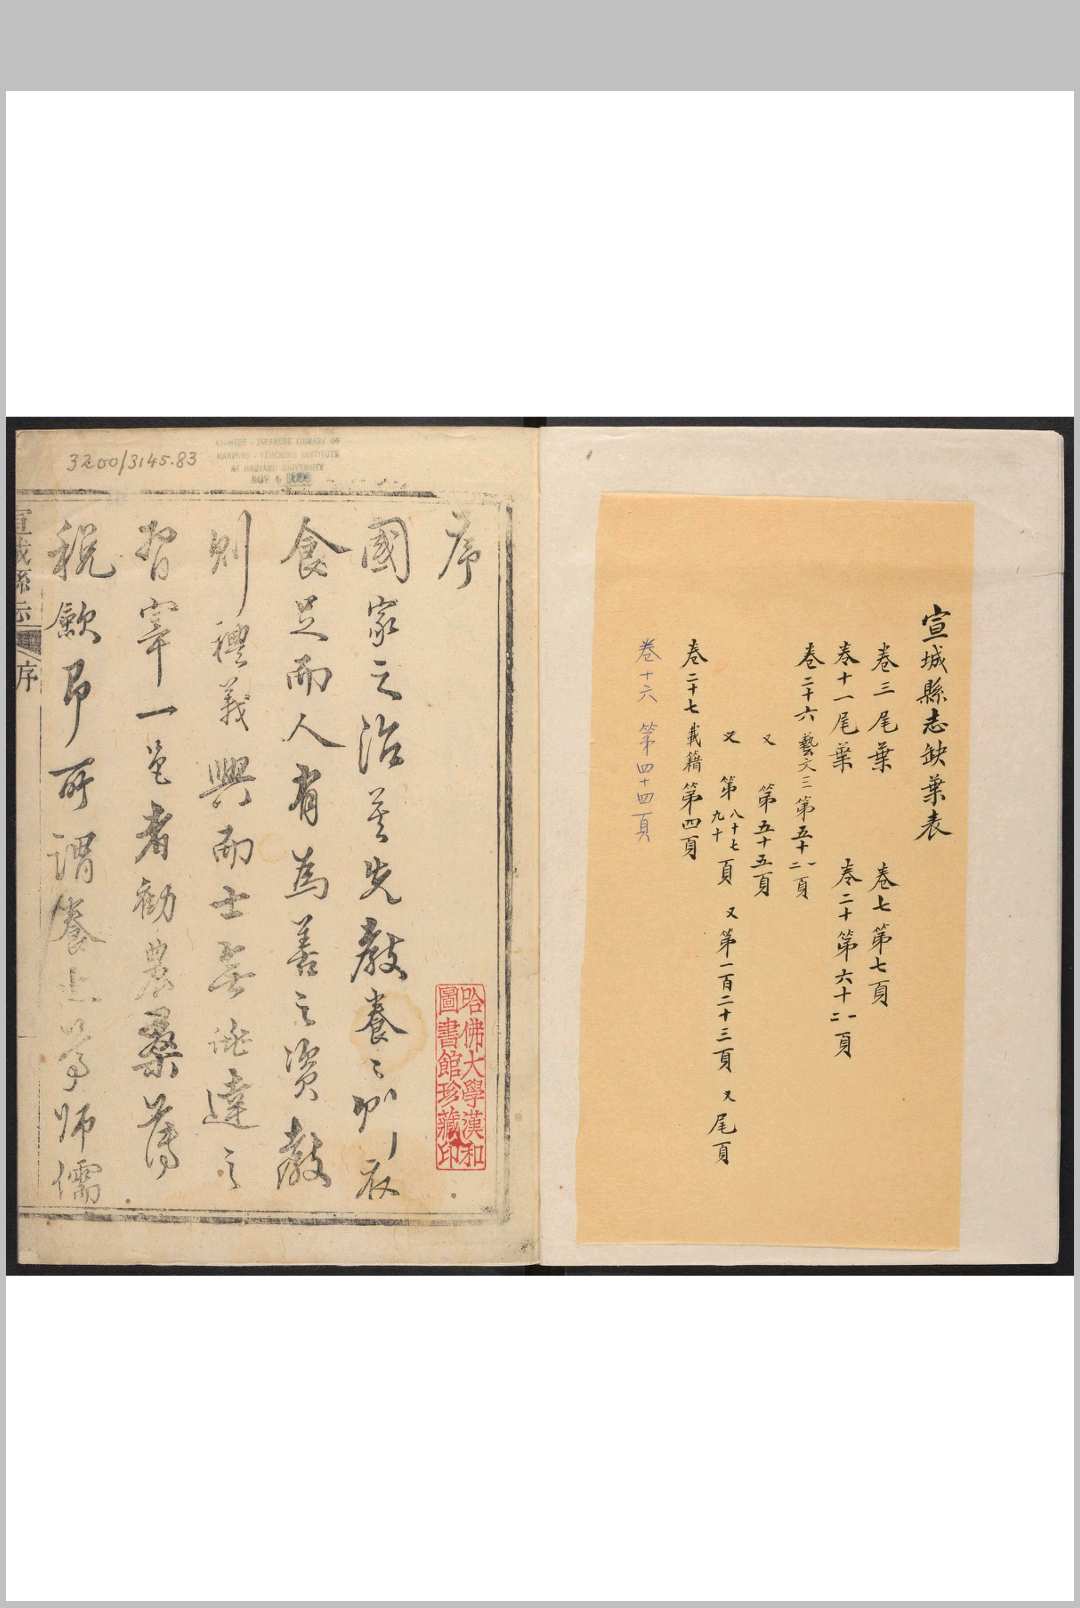 宣城縣志缺葉表
卷三尾葉 卷七第七頁
卷十一尾葉 卷二十第六十一二頁
卷二十六藝文三第五十一二頁
又 第五十五頁
又 第八十七九十頁 又第一百二十三頁 又尾頁
卷二十七載籍第四頁
卷十六 第四十四頁
3200/3145.83
CHINESE - JAPANESE LIBRARY OF
HARVARD - YENCHING INSTITUTE
AT HARVARD UNIVERSITY
序
國家之治莫先教養養則衣
食足而人有為善之資教
則禮義興而士無
達之
宰一邑者勸農桑薄
稅斂即所謂養也
師儒
哈佛大學漢和
圖書館珍藏印
宣城縣志
序